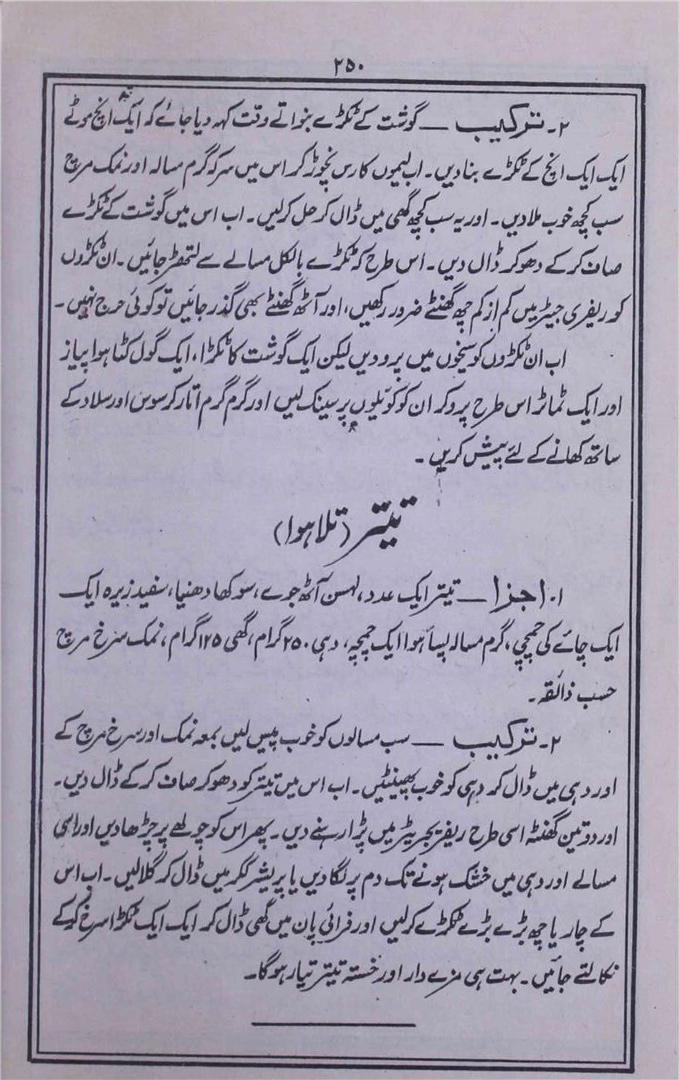 ۲۵۰
۲۔ ترکیب ـــ گوشت کے ٹکڑے بنواتے وقت کہہ دیا جائے کہ ایک انچ موٹے
ایک ایک انچ کے ٹکڑے بنا دیں۔ اب لیموں کا رس نچوڑ کر اس میں سرکہ گرم مسالہ اور نمک مرچ
سب کچھ خوب ملا دیں۔ اور یہ سب کچھ گھی میں ڈال کر حل کر لیں۔ اب اس میں گوشت کے ٹکڑے
صاف کر کے دھو کر ڈال دیں۔ اس طرح کہ ٹکڑے بالکل مسالے سے لتھڑ جائیں۔ ان ٹکڑوں
کو ریفری جیٹر میں کم از کم چھ گھنٹے ضرور رکھیں، اور آٹھ گھنٹے بھی گذر جائیں تو کوئی حرج نہیں۔
اب ان ٹکڑوں کو سیخوں میں پرو دیں لیکن ایک گوشت کا ٹکڑا، ایک گول کٹا ہوا پیاز
اور ایک ٹماٹر اس طرح پرو کر ان کو کوئیلوں پر سینک لیں اور گرم گرم اتار کر سوس اور سلاد کے
ساتھ کھانے کے لئے پیش کریں۔
تیتر (تلا ہوا)
۱۔ اجزا ـــ تیتر ایک عدد، لہسن آٹھ جوے، سوکھا دھنیا، سفید زیرہ ایک
ایک چائے کی چمچی، گرم مسالہ پسا ہوا ایک چمچہ، دہی ۲۵۰ گرام، گھی ۱۲۵ گرام، نمک سرخ مرچ
حسب ذائقہ۔
۲۔ ترکیب ـــ سب مسالوں کو خوب پیس لیں بمعہ نمک اور سرخ مرچ کے
اور دہی میں ڈال کر دہی کو خوب پھینٹیں۔ اب اس میں تیتر کو دھو کر صاف کر کے ڈال دیں۔
اور دو تین گھنٹہ اسی طرح ریفریجریٹر میں پڑا رہنے دیں۔ پھر اس کو چولھے پر چڑھا دیں اور اسی
مسالے اور دہی میں خشک ہونے تک دم پر لگا دیں یا پریشر ککر میں ڈال کر گلا لیں۔ اب اس
کے چار یا چھ بڑے بڑے ٹکڑے کر لیں اور فرائی پان میں گھی ڈال کر ایک ایک ٹکڑا سرخ کر کے
نکالتے جائیں۔ بہت ہی مزے دار اور خستہ تیتر تیار ہو گا۔